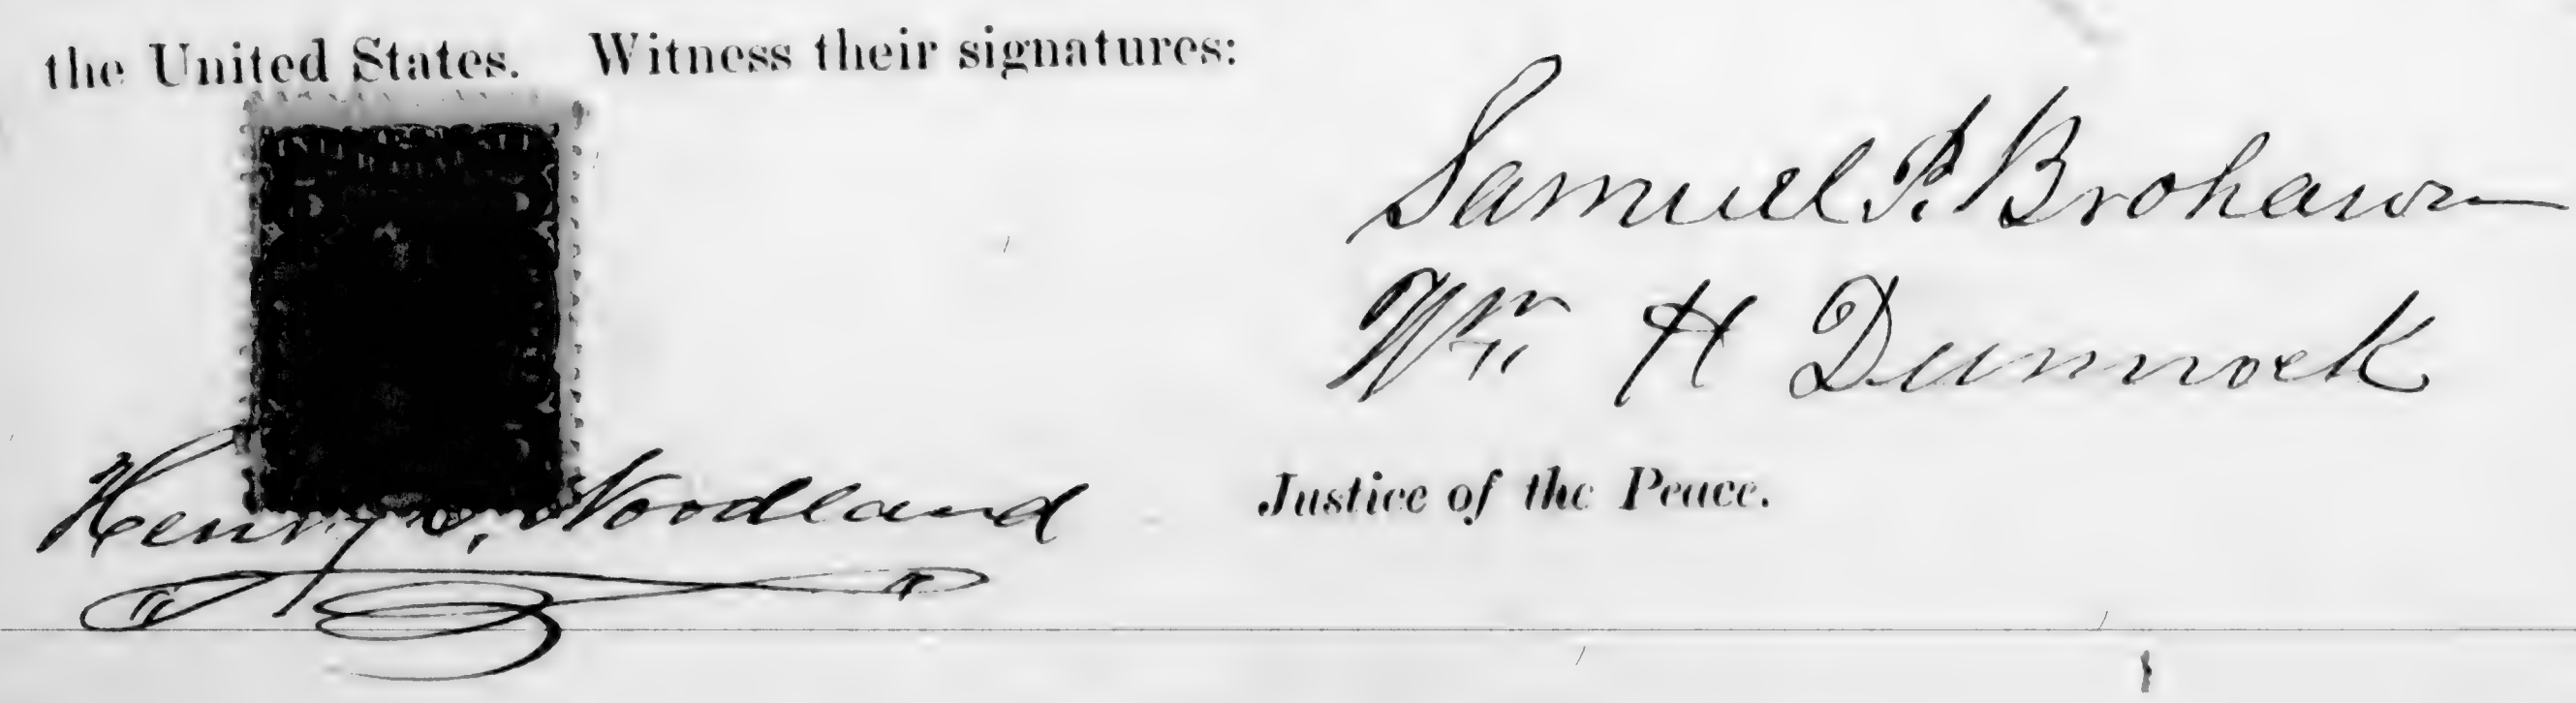 the United States. Witness their signatures:
Samuel P. Brohawn
Wm H Dunnock
Henry Woodland
Justice of the Peace.